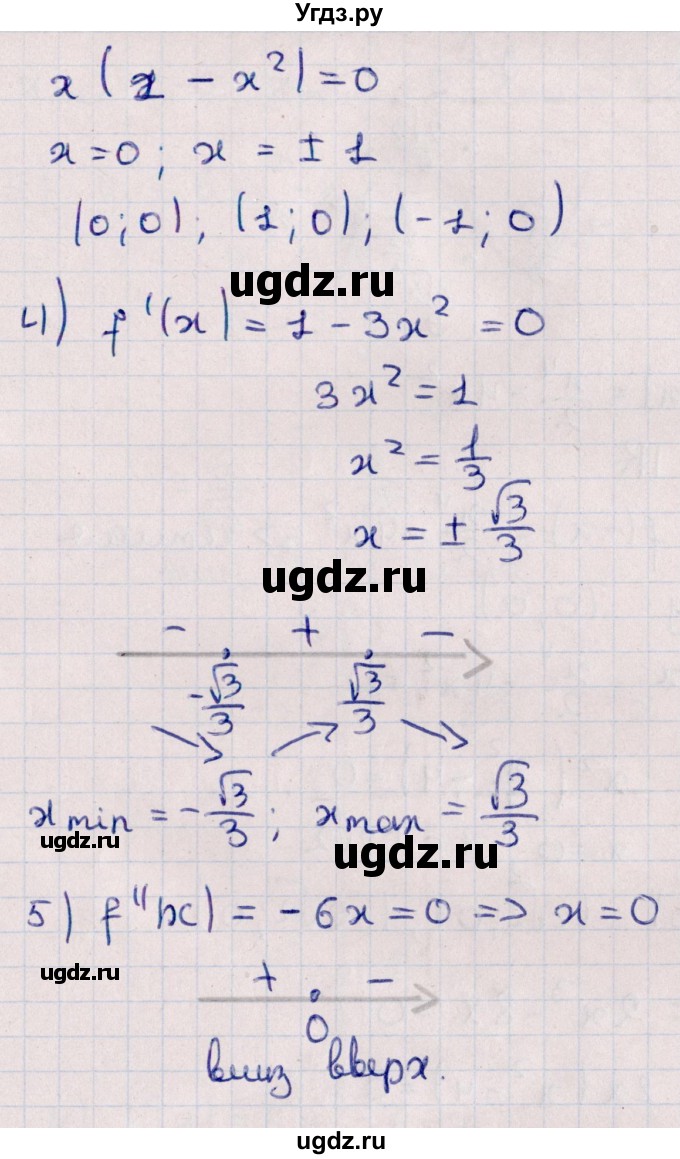 Угдз.ру
x(1 - x²) = 0
x = 0; x = ± 1
(0; 0); (1; 0); (-1; 0)
ugdz.ru
4) f'(x) = 1 - 3x² = 0
3x² = 1
x² = 1/3
x = ± √3/3
ugdz.ru
- + -
-√3/3 √3/3
x min = -√3/3; x max = √3/3
ugdz.ru ugdz.ru
5) f''(x) = -6x = 0 => x = 0
ugdz.ru
+ -
0
вниз вверх.
ugdz.ru